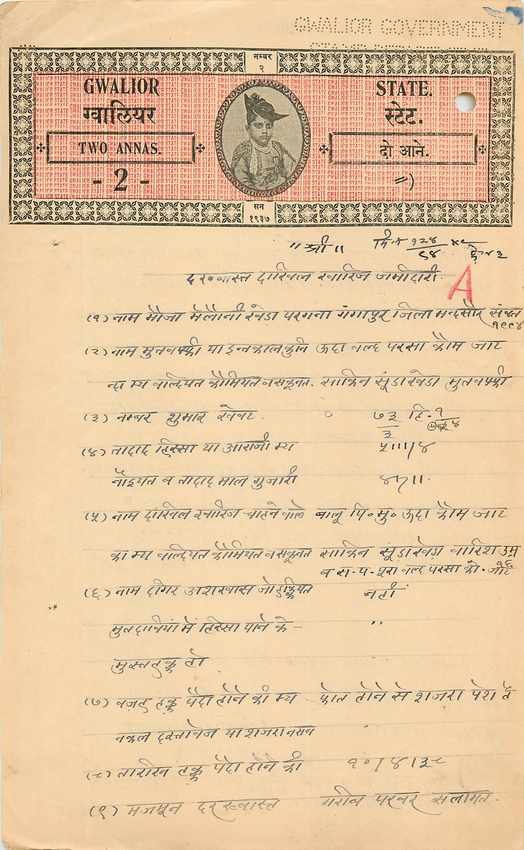 GWALIOR GOVERNMENT
नम्बर
२
GWALIOR
ग्वालियर
TWO ANNAS.
- 2 -
STATE.
स्टेट.
दो आने.
सन
१९३७
"श्री"
A
दरख्वास्त दाखिल खारिज जमींदारी
(१) नाम मौजा मेलौनी खेडा परगना गंगापुर जिला मन्दसौर संवत
१९९४
(२) नाम मुतवफ्फी या इन्तकाल कुनि ऊदा वल्द परसा कौम जाट
व कौमियत व सकूनत साकिन सूंडाखेडा मुतवफ्फी
(३) नम्बर शुमार खेवट ७३ हि. १
(४) तादाद हिस्सा या आराजी मय ५।।।/४
नौइयत व तादाद माल गुजारी
(५) नाम दाखिल खारिज चाहने वाले बालू पि० मु० ऊदा कौम जाट
का मय वल्दियत कौमियत व सकूनत साकिन सूंडाखेडा वारिश
वल्द परसा को. जाट
(६) नाम दीगर अशखास जो हकियत नहीं
में हिस्सा पाने के "
मुस्तहक हो
(७) वजह हक्क पैदा होने की मय फोत होने से शजरा पेश है
नकल दस्तावेज या शजरा नसब
(८) तारीख हक्क पैदा होने की १०/४/३८
(९) मजमून दरख्वास्त गरीब परवर सलामत.